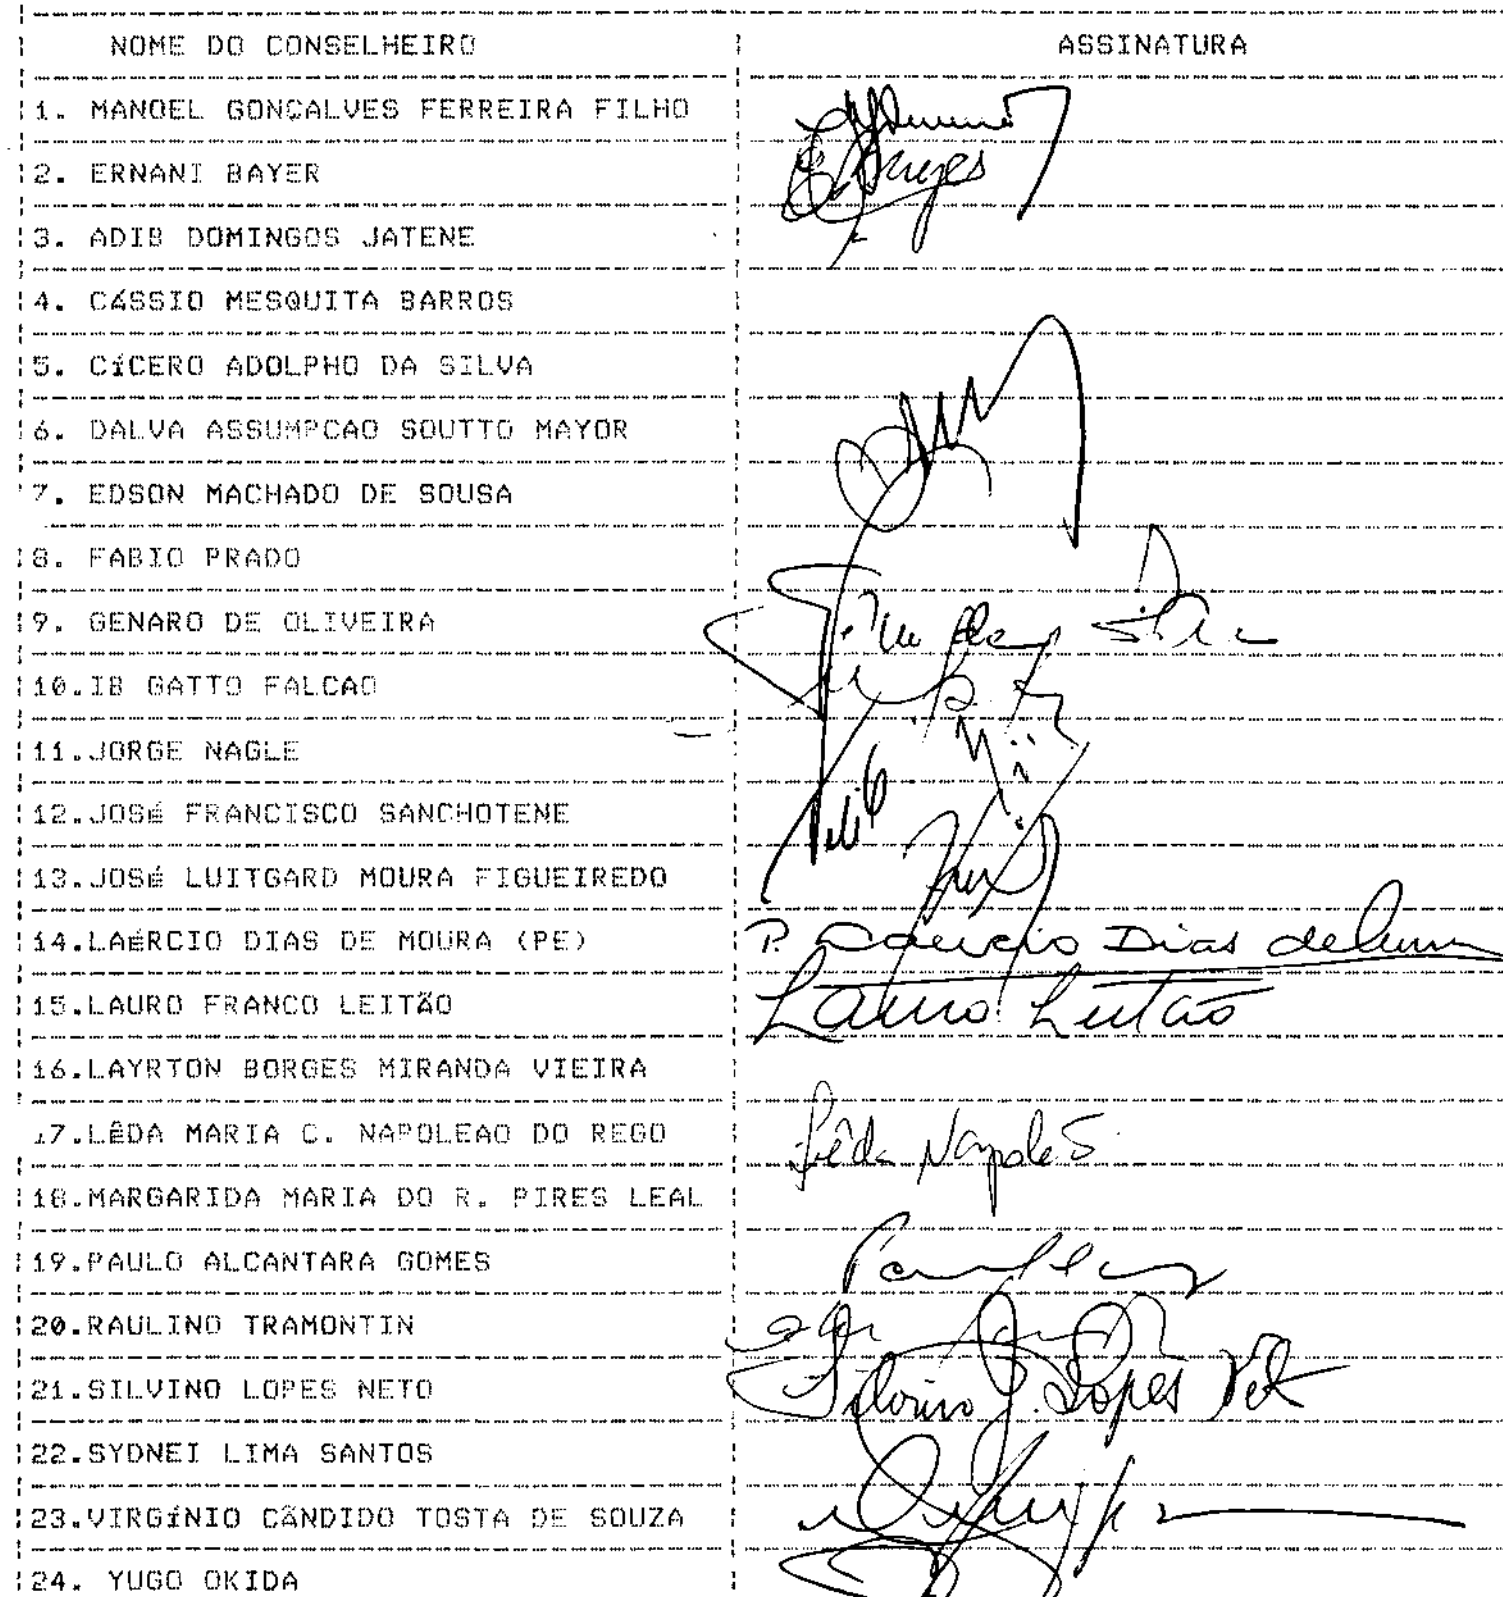 NOME DO CONSELHEIRO ASSINATURA
1. MANOEL GONÇALVES FERREIRA FILHO
2. ERNANI BAYER
3. ADIB DOMINGOS JATENE
4. CÁSSIO MESQUITA BARROS
5. CíCERO ADOLPHO DA SILVA
6. DALVA ASSUMPCAO SOUTTO MAYOR
7. EDSON MACHADO DE SOUSA
8. FABIO PRADO
9. GENARO DE OLIVEIRA
10.IB GATTO FALCAO
11.JORGE NAGLE
12.JOSé FRANCISCO SANCHOTENE
13.JOSé LUITGARD MOURA FIGUEIREDO
14.LAÉRCIO DIAS DE MOURA (PE) P. Laercio Dias de
15.LAURO FRANCO LEITÃO Lauro Leitão
16.LAYRTON BORGES MIRANDA VIEIRA
17.LÊDA MARIA C. NAPOLEAO DO REGO Lêda Napoleão
18.MARGARIDA MARIA DO R. PIRES LEAL
19.PAULO ALCANTARA GOMES
20.RAULINO TRAMONTIN
21.SILVINO LOPES NETO Silvino J. Lopes Neto
22.SYDNEI LIMA SANTOS
23.VIRGíNIO CÂNDIDO TOSTA DE SOUZA
24. YUGO OKIDA